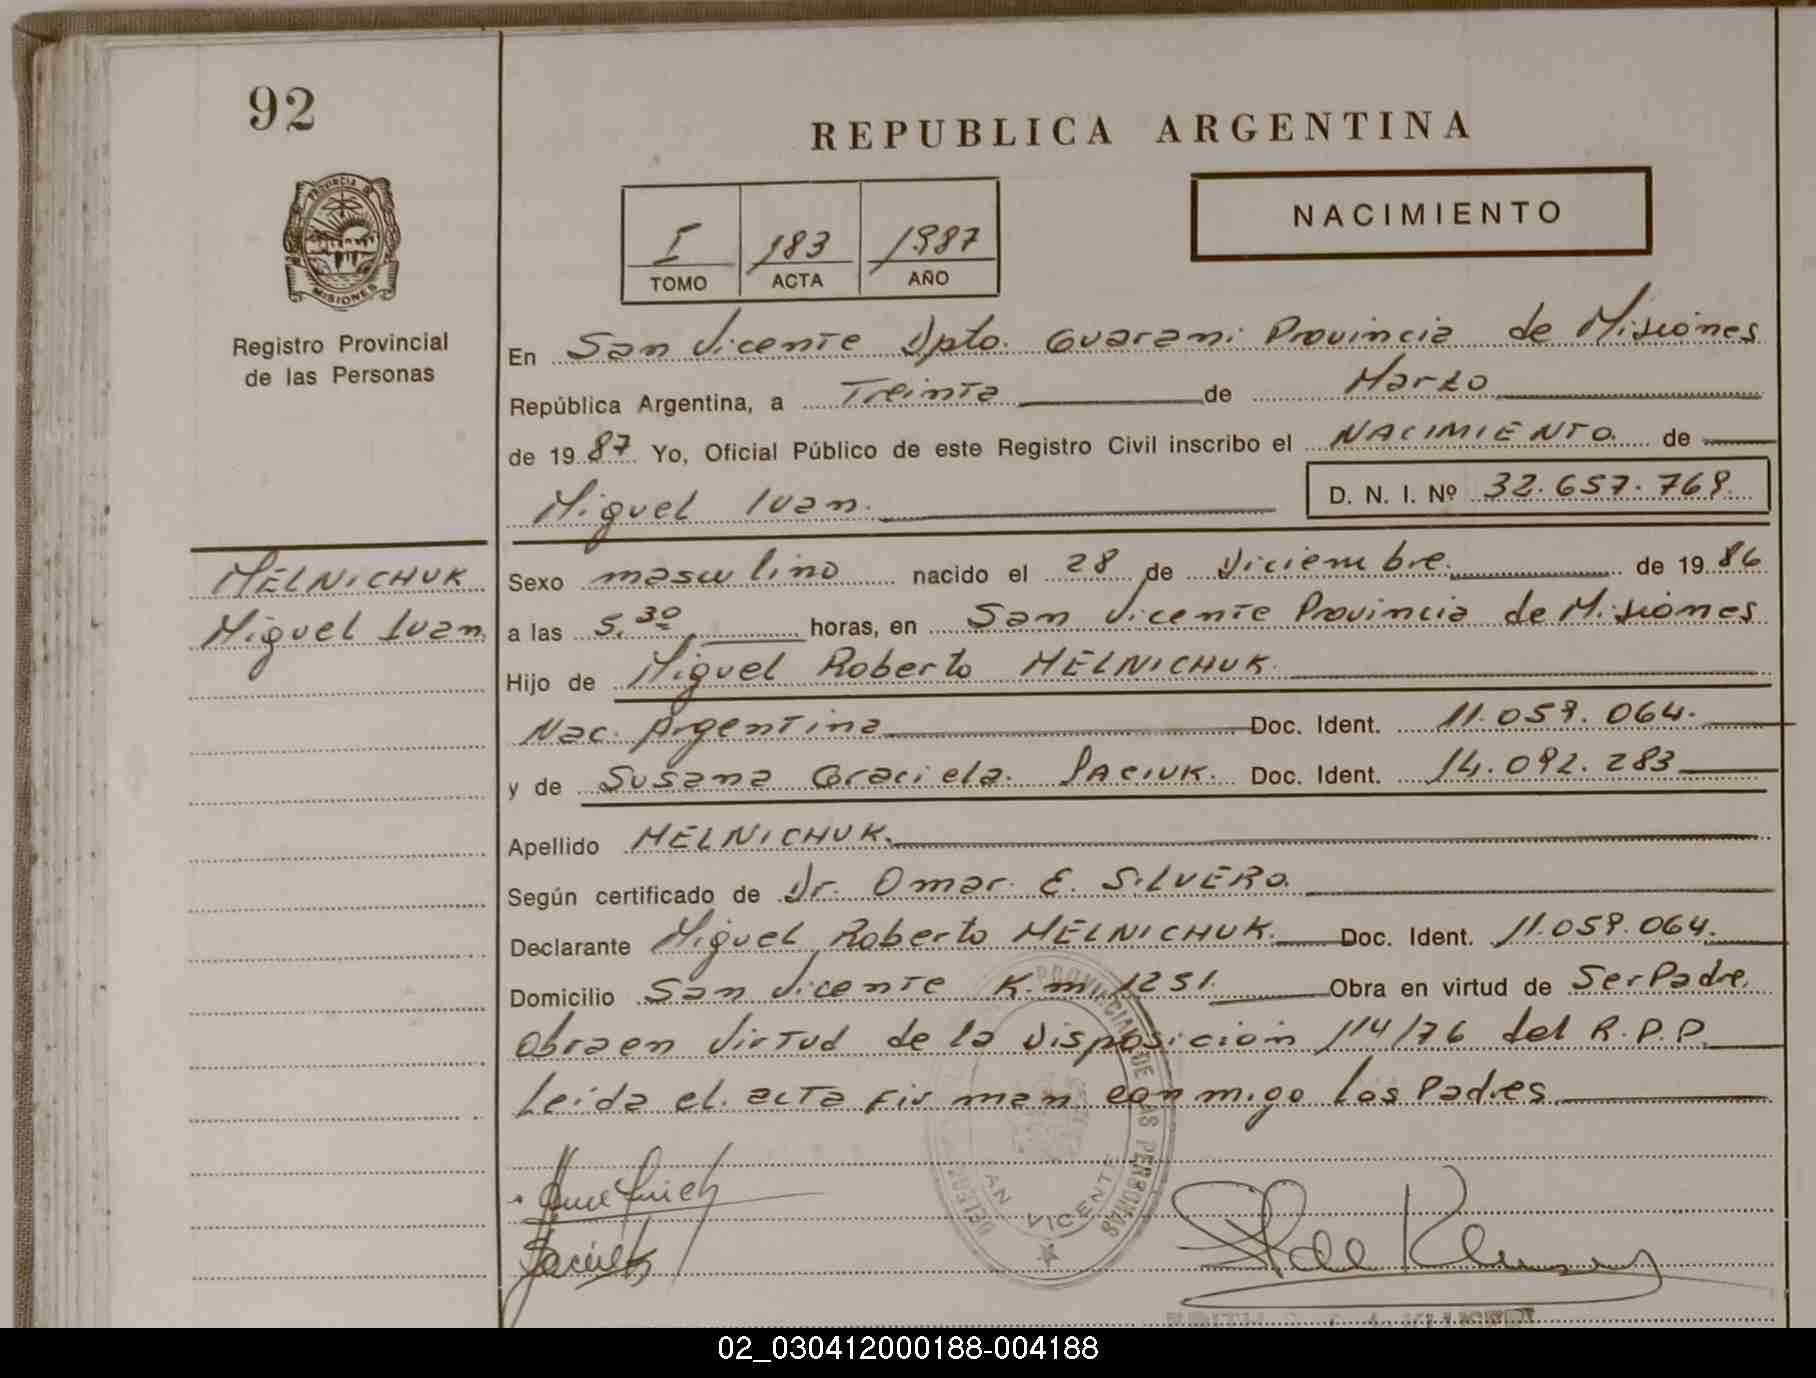 92
REPUBLICA ARGENTINA
PROVINCIA DE
MISIONES
Registro Provincial
de las Personas
I 183 1987
TOMO ACTA AÑO
NACIMIENTO
En San Vicente Dpto. Guarani Provincia de Misiones
República Argentina, a Treinta de Marzo
de 19 87 Yo, Oficial Público de este Registro Civil inscribo el NACIMIENTO de
Miguel Ivan. D. N. I. Nº 32.657.769.
MELNICHUK
Miguel Ivan.
Sexo masculino nacido el 28 de Diciembre. de 19 86
a las 5,30 horas, en San Vicente Provincia de Misiones
Hijo de Miguel Roberto MELNICHUK.
Nac. Argentina Doc. Ident. 11.059.064.
y de Susana Graciela. PACIUK. Doc. Ident. 14.092.283
Apellido MELNICHUK.
Según certificado de Dr. Omar. E. SILVERO.
Declarante Miguel Roberto MELNICHUK. Doc. Ident. 11.059.064.
Domicilio San Vicente K.m. 1251. Obra en virtud de Ser Padre.
Obra en virtud de la Disposición 114/76 del R.P.P.
Leida el acta firman conmigo los Padres.
PROVINCIAL DE LAS PERSONAS
SAN VICENTE
02_030412000188-004188